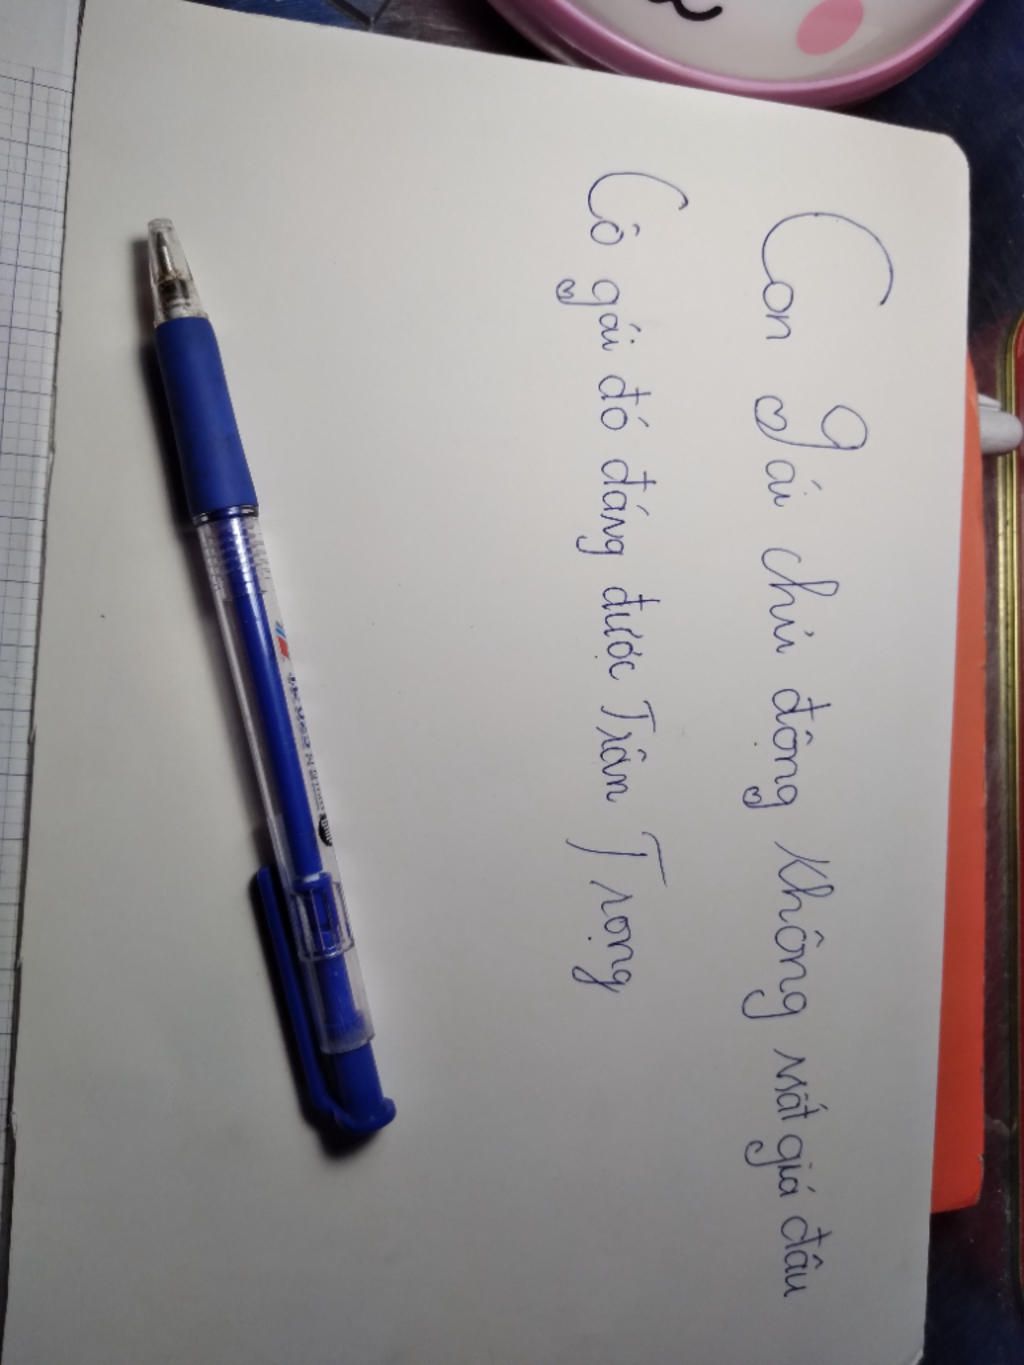 Con gái chủ động không mất giá đâu
Cô gái đó đáng được Trân Trọng